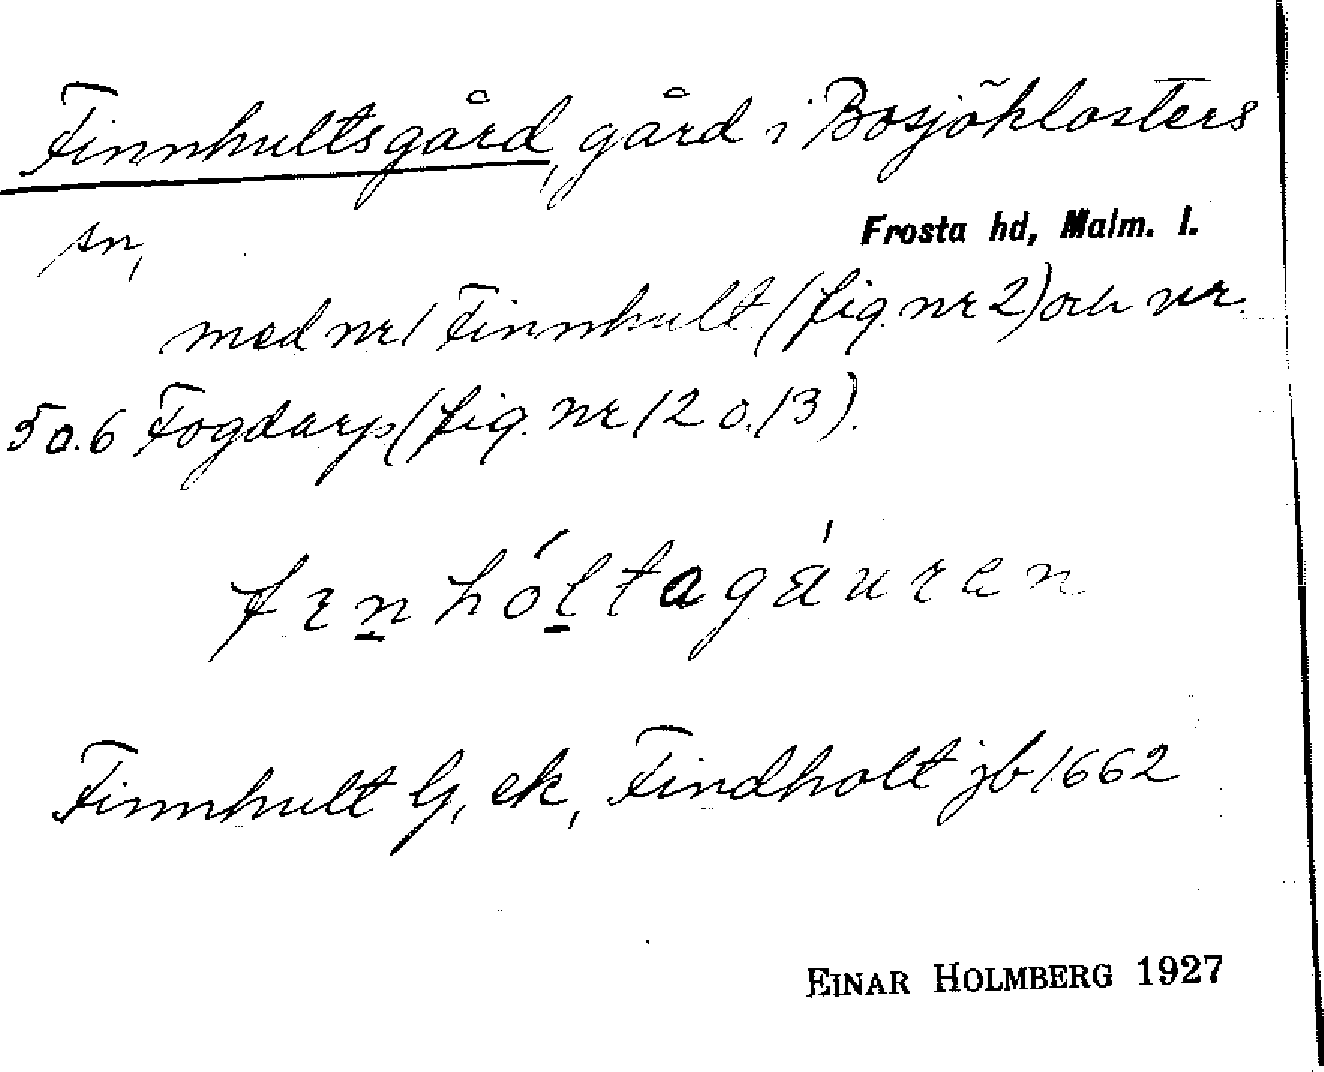 Finnhultsgård, gård i Bosjöklosters
sn,
Frosta hd, Malm. l.
med nr 1 Finnhult (fig. nr 2) och nr.
5 o. 6 Fogdarp (fig. nr 12 o. 13).
fɪn̲hól̲tagáuren
Finnhult G, ek, Findholt jb 1662
EINAR HOLMBERG 1927